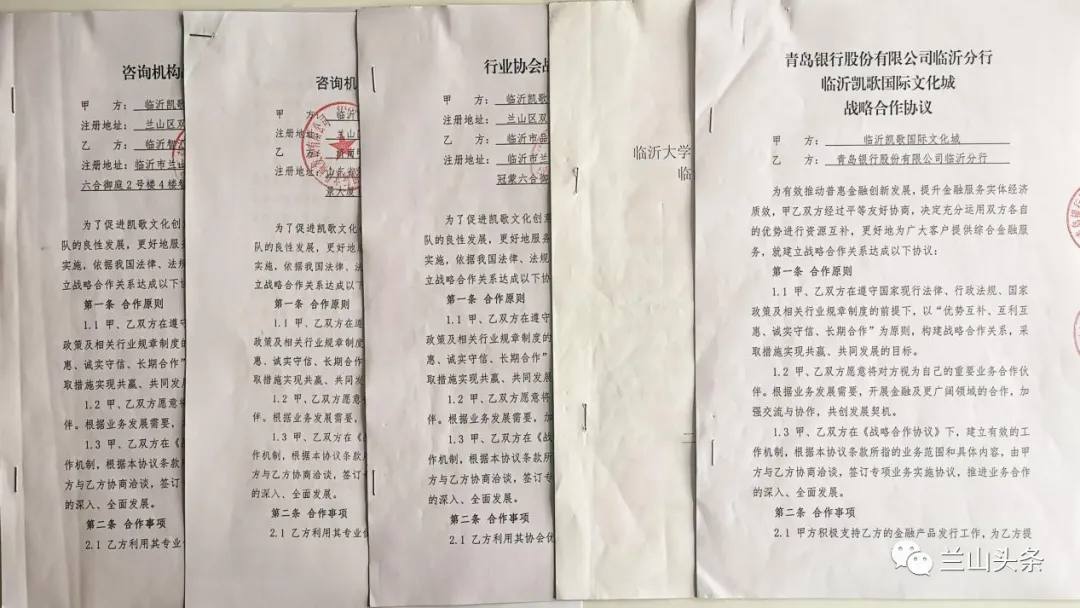 咨询机构
甲 方：临沂凯歌
注册地址：兰山区双
乙 方：临沂智
注册地址：临沂市兰山
六合御庭2号楼4楼
为了促进凯歌文化创
队的良性发展，更好地服
实施，依据我国法律、法规
立战略合作关系达成以下协
第一条 合作原则
1.1 甲、乙双方在遵守
政策及相关行业规章制度的
惠、诚实守信、长期合作”
取措施实现共赢、共同发展
1.2 甲、乙双方愿意将
伴。根据业务发展需要，
1.3 甲、乙双方在《
作机制，根据本协议条款
方与乙方协商洽谈，签订
的深入、全面发展。
第二条 合作事项
2.1 乙方利用其专业
咨询机
甲 方：临沂
注册地址：兰山
乙
注册地址：
景大厦
为了促进凯歌文化
队的良性发展，更好地服
实施，依据我国法律、法
立战略合作关系达成以下
第一条 合作原则
1.1 甲、乙双方在遵
政策及相关行业规章制度
惠、诚实守信、长期合作
取措施实现共赢、共同发
1.2 甲、乙双方愿意
伴。根据业务发展需要，
1.3 甲、乙双方在
作机制，根据本协议条款
方与乙方协商洽谈，签订
的深入、全面发展。
第二条 合作事项
2.1 乙方利用其专业
行业协会战
甲 方：临沂凯歌
注册地址：兰山区双
乙 方：临沂市品
注册地址：临沂市兰
冠蒙六合御
为了促进凯歌文化创意
队的良性发展，更好地服务
实施，依据我国法律、法规
立战略合作关系达成以下协
第一条 合作原则
1.1 甲、乙双方在遵守
政策及相关行业规章制度的
惠、诚实守信、长期合作”
取措施实现共赢、共同发展
1.2 甲、乙双方愿意将
伴。根据业务发展需要，加
1.3 甲、乙双方在《战
作机制，根据本协议条款所
方与乙方协商洽谈，签订专
的深入、全面发展。
第二条 合作事项
2.1 乙方利用其协会优
临沂大学
临
青岛银行股份有限公司临沂分行
临沂凯歌国际文化城
战略合作协议
甲 方：临沂凯歌国际文化城
乙 方：青岛银行股份有限公司临沂分行
为有效推动普惠金融创新发展，提升金融服务实体经济
质效，甲乙双方经过平等友好协商，决定充分运用双方各自
的优势进行资源互补，更好地为广大客户提供综合金融服
务，就建立战略合作关系达成以下协议：
第一条 合作原则
1.1 甲、乙双方在遵守国家现行法律、行政法规、国家
政策及相关行业规章制度的前提下，以“优势互补、互利互
惠、诚实守信、长期合作”为原则，构建战略合作关系，采
取措施实现共赢、共同发展的目标。
1.2 甲、乙双方愿意将对方视为自己的重要业务合作伙
伴。根据业务发展需要，开展金融及更广阔领域的合作，加
强交流与协作，共创发展契机。
1.3 甲、乙双方在《战略合作协议》下，建立有效的工
作机制，根据本协议条款所指的业务范围和具体内容，由甲
方与乙方协商洽谈，签订专项业务实施协议，推进业务合作
的深入、全面发展。
第二条 合作事项
2.1 甲方积极支持乙方的金融产品发行工作，为乙方提
兰山头条